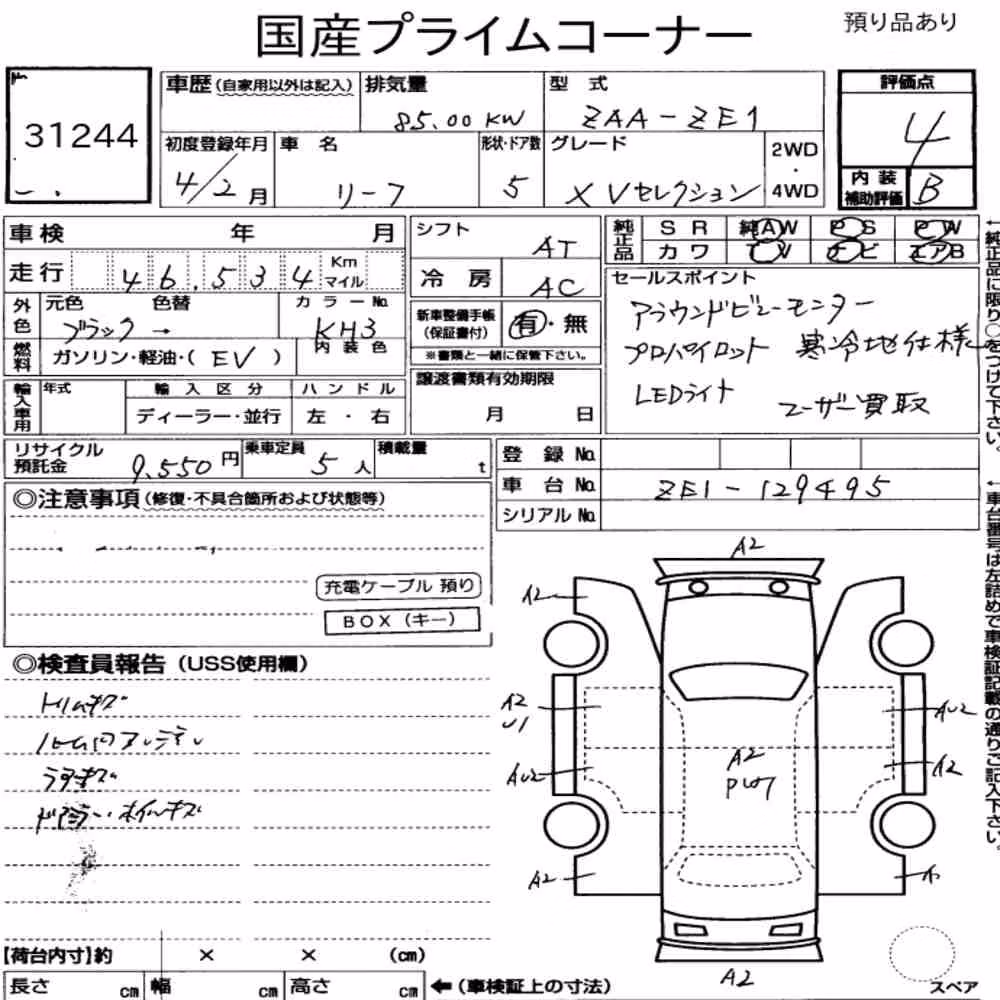 国産プライムコーナー
預り品あり
31244
車歴(自家用以外は記入)
排気量
85.00 KW
型 式
ZAA-ZE1
評価点
4
初度登録年月
4/2月
車 名
リーフ
形状・ドア数
5
グレード
X Vセレクション
2WD
・
4WD
内 装
補助評価
B
車検 年 月
シフト
AT
純正品
S R 純AW P S P W
カ ワ T V ナ ビ エアB
走行 46,534 Km マイル
冷 房
AC
セールスポイント
アラウンドビューモニター
プロパイロット 寒冷地仕様
LEDライト
ユーザー買取
外色
元色 色替
ブラック→
カラーNo.
KH3
新車整備手帳
(保証書付)
有・無
※書類と一緒に保管下さい。
燃料
ガソリン・軽油・( EV )
内 装 色
輸入車用
年式
輸 入 区 分
ハ ン ド ル
ディーラー・並行
左 ・ 右
譲渡書類有効期限
月 日
←純正品に限り○をつけて下さい。
リサイクル
預託金
9,550円
乗車定員
5人
積載量
t
登 録 No.
車 台 No.
ZE1-129495
シリアル No.
←車台番号は左詰めで車検証記載の通りご記入下さい。
◎注意事項(修復・不具合箇所および状態等)
充電ケーブル 預り
BOX(キー)
◎検査員報告(USS使用欄)
トリムキズ
ドアミラー・ホイルキズ
A2
A2
A2
U1
AU2
AU2
A2
A2
A2
A2
【荷台内寸】約 × × (cm)
長さ cm 幅 cm 高さ cm ←(車検証上の寸法)
スペア